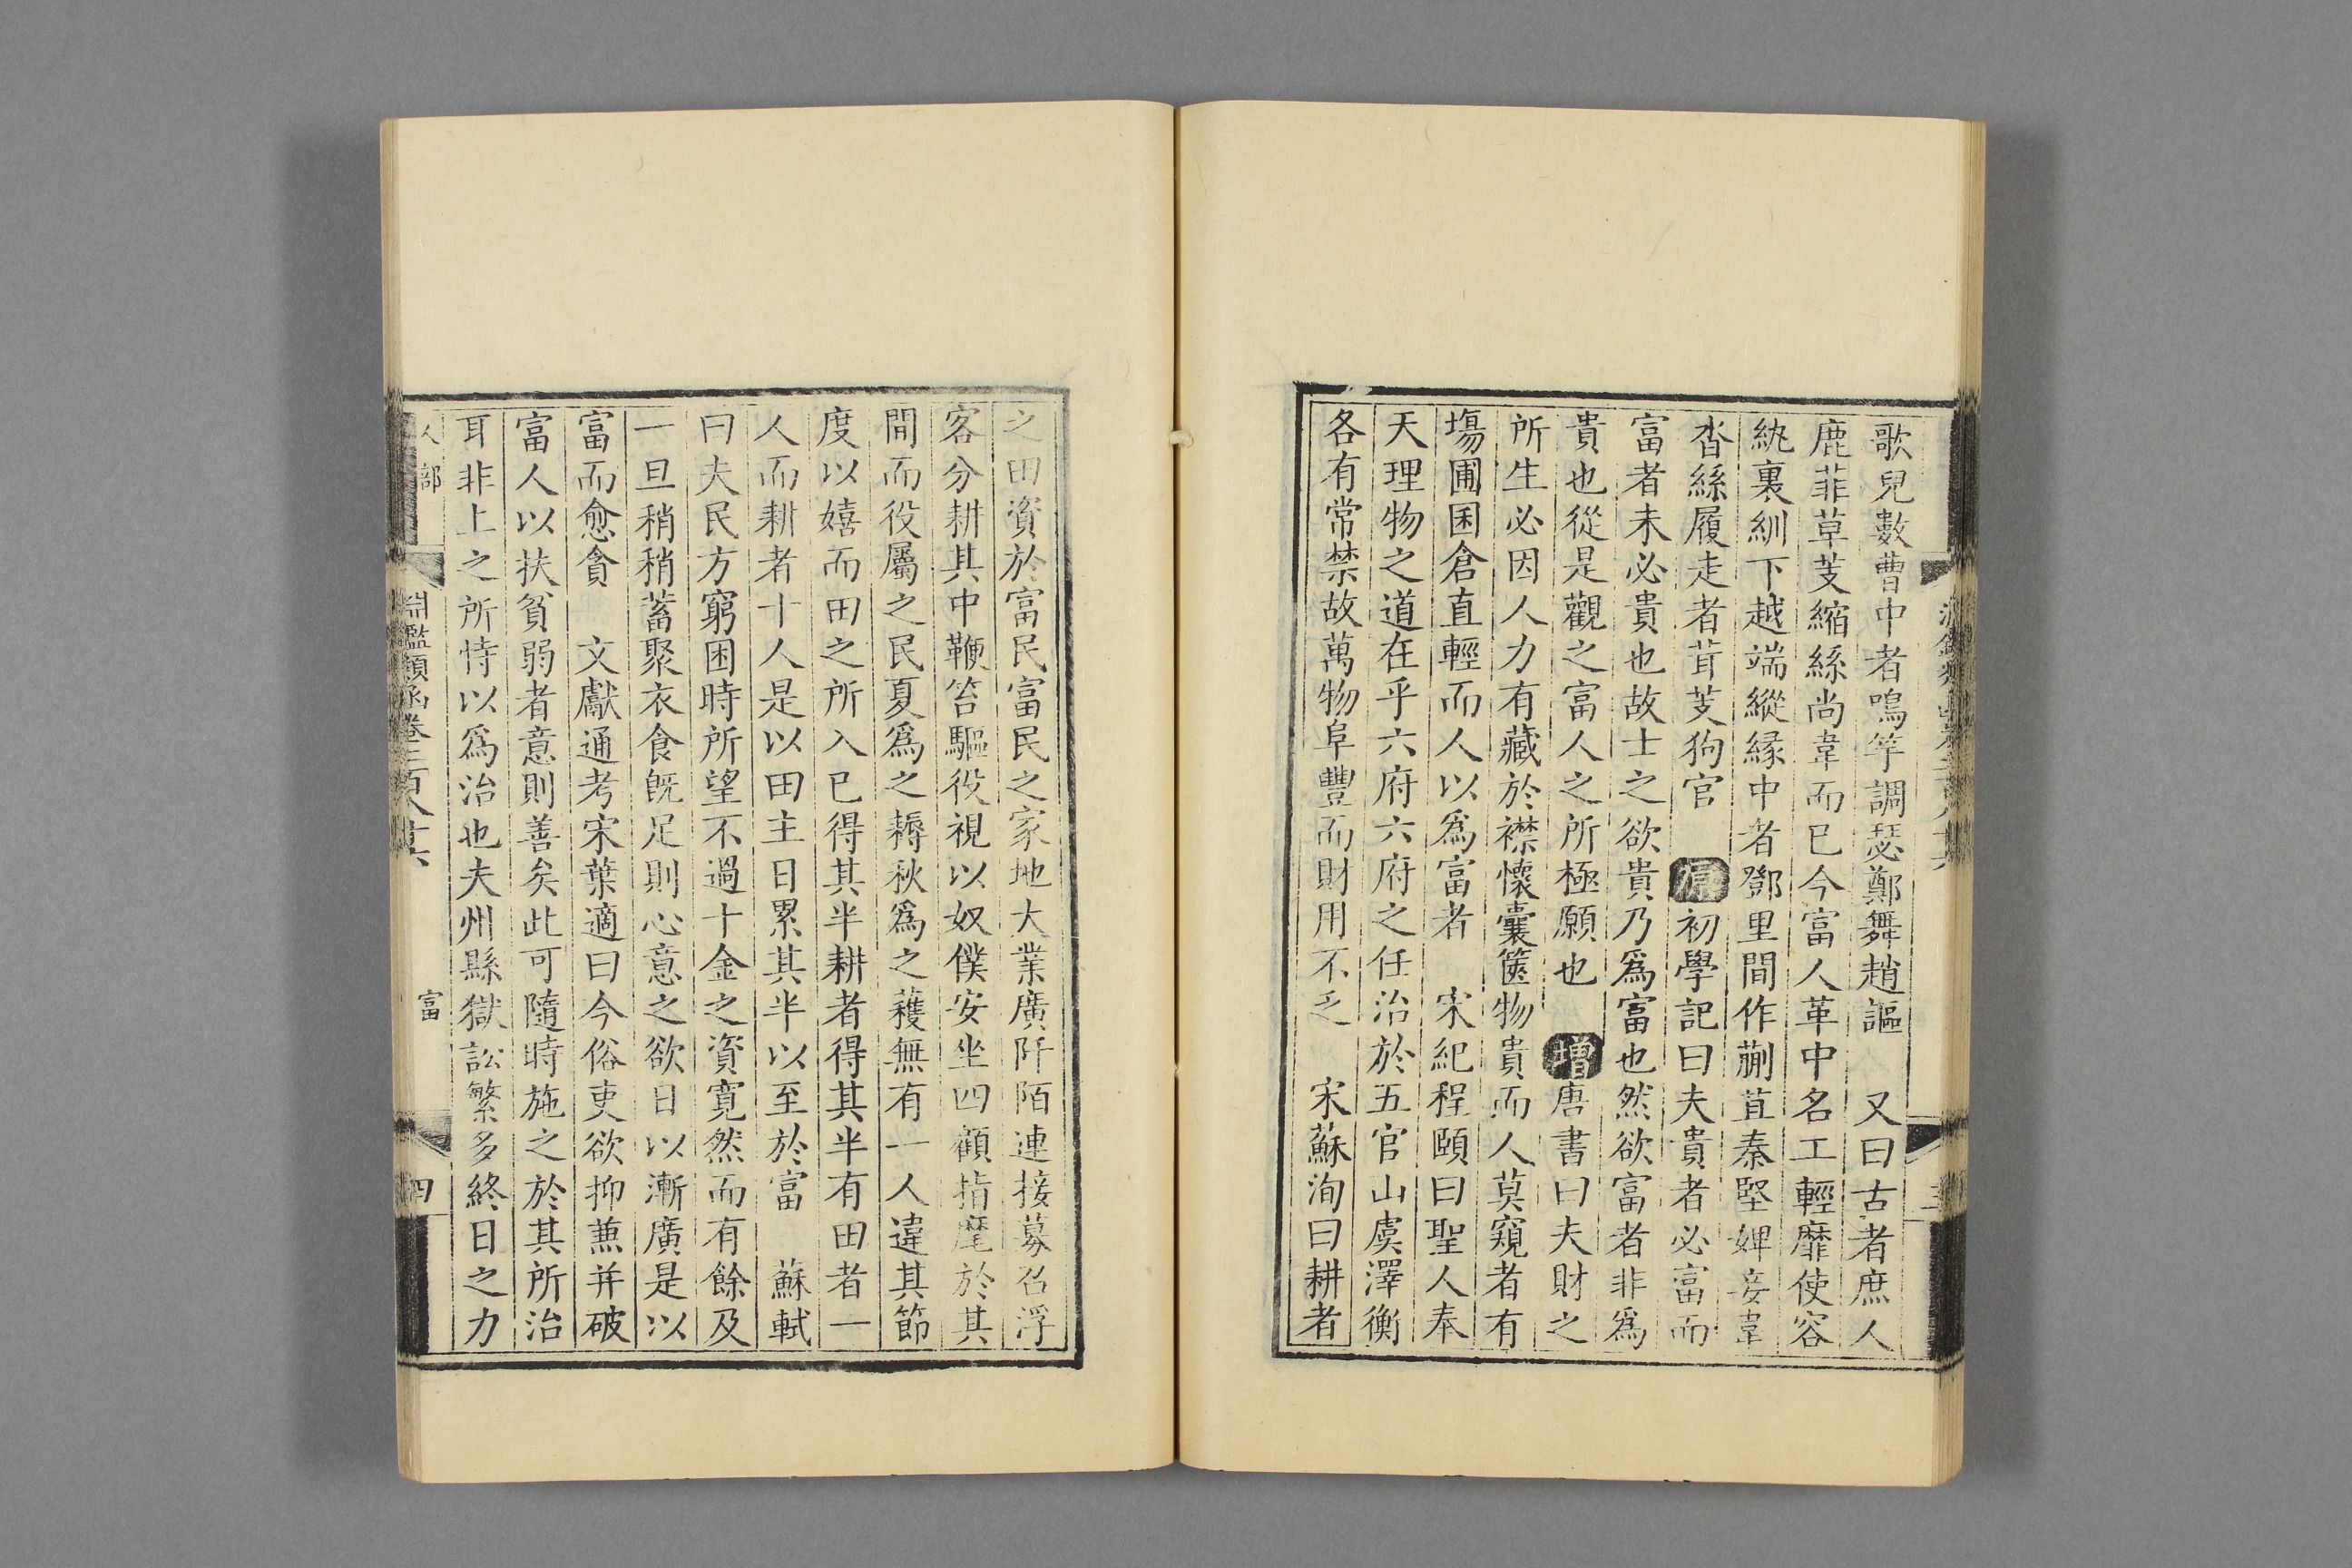 歌兒數曹中者鳴竽調瑟鄭舞趙謳　又曰古者庶人
鹿菲草芰縮絲尚韋而已今富人革中名工輕靡使容
紈裏紃下越端縱緣中者鄧里間作蒯苴秦堅婢妾韋
沓絲履走者茸芰狗官　原初學記曰夫貴者必富而
富者未必貴也故士之欲貴乃爲富也然欲富者非爲
貴也從是觀之富人之所極願也　增唐書曰夫財之
所生必因人力有藏於襟懷囊篋物貴而人莫窺者有
塲圃囷倉直輕而人以爲富者　宋紀程頤曰聖人奉
天理物之道在乎六府六府之任治於五官山虞澤衡
各有常禁故萬物阜豐而財用不乏　宋蘇洵曰耕者
之田資於富民富民之家地大業廣阡陌連接募召浮
客分耕其中鞭笞驅役視以奴僕安坐四顧指麾於其
間而役屬之民夏爲之耨秋爲之穫無有一人違其節
度以嬉而田之所入已得其半耕者得其半有田者一
人而耕者十人是以田主日累其半以至於富　蘇軾
曰夫民方窮困時所望不過十金之資寬然而有餘及
一旦稍稍蓄聚衣食旣足則心意之欲日以漸廣是以
富而愈貪　文獻通考宋葉適曰今俗吏欲抑兼并破
富人以扶貧弱者意則善矣此可隨時施之於其所治
耳非上之所恃以爲治也夫州縣獄訟繁多終日之力
人部
淵鑑類函卷三百八十六
富
四